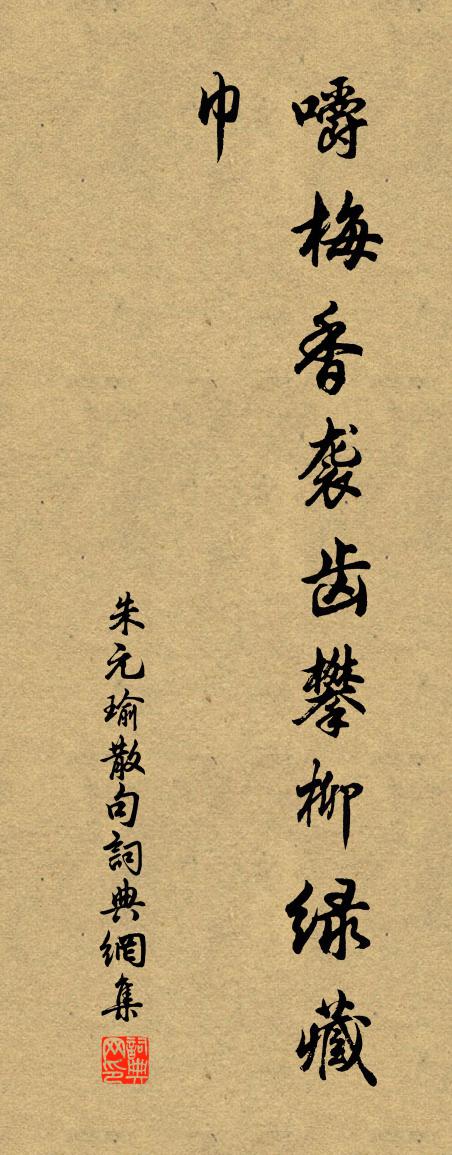 嚼梅香袭齿攀柳绿藏
巾
朱元瑜散句詞典網集
詞典网印